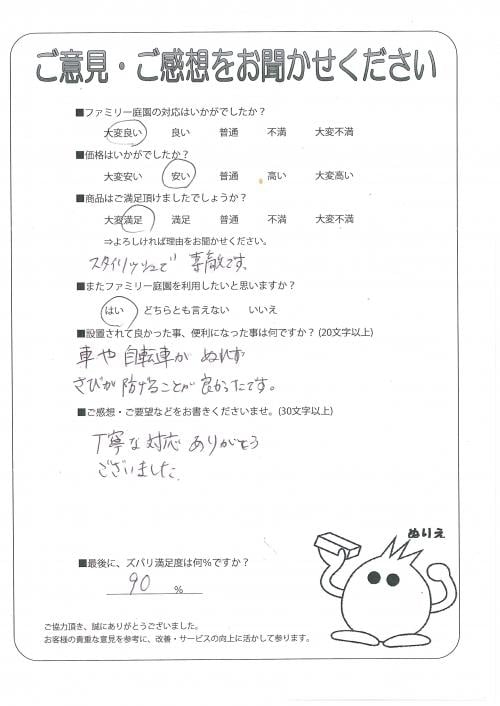 ご意見・ご感想をお聞かせください
■ファミリー庭園の対応はいかがでしたか？
大変良い 良い 普通 不満 大変不満
■価格はいかがでしたか？
大変安い 安い 普通 高い 大変高い
■商品はご満足頂けましたでしょうか？
大変満足 満足 普通 不満 大変不満
⇒よろしければ理由をお聞かせください。
スタイリッシュで 素敵です。
■またファミリー庭園を利用したいと思いますか？
はい どちらとも言えない いいえ
■設置されて良かった事、便利になった事は何ですか？(20文字以上)
車や 自転車が ぬれず
さびが 防げることが 良かったです。
■ご感想・ご要望などをお書きくださいませ。(30文字以上)
丁寧な 対応 ありがとう
ございました。
ぬりえ
■最後に、ズバリ満足度は何％ですか？
90 ％
ご協力頂き、誠にありがとうございました。
お客様の貴重な意見を参考に、改善・サービスの向上に活かして参ります。